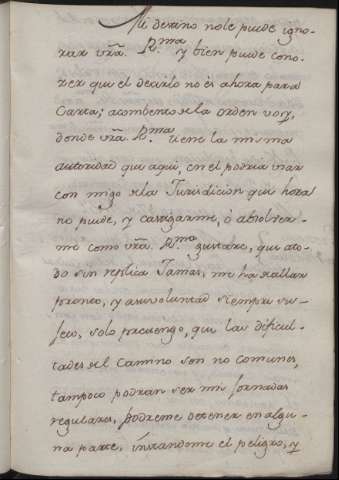 Mi destino nole puede igno-
rar vrã. R.ma y bien puede cono-
zer que el decirlo no es ahora para
Carta; a combento de la orden voy,
donde vrã. R.ma tiene la misma
autoridad que aqui, en el podria usar
con migo de la Jurisdicion que hora
no puede, y castigarme, ò absolver-
me como vrã. R.ma gustare, que ato-
do sin replica Jamas, me ha de allar
pronto, y asu voluntad siempre su-
jeto, solo prevengo, que las dificul-
tades del Camino son no comunes,
tampoco podran ser mis Jornadas
regulares, podreme detener en algu-
na parte, instandome el peligro, y